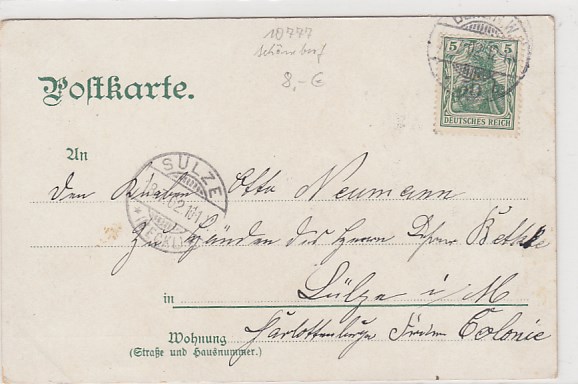 10777
Schöneberg
8,-€
Postkarte.
5 5
DEUTSCHES REICH
An
SÜLZE
Den Knaben Otto Neumann
Zu Händen des Herrn Bethke
in Sülze i M
Wohnung Charlottenburger Ferien Colonie
(Straße und Hausnummer.)